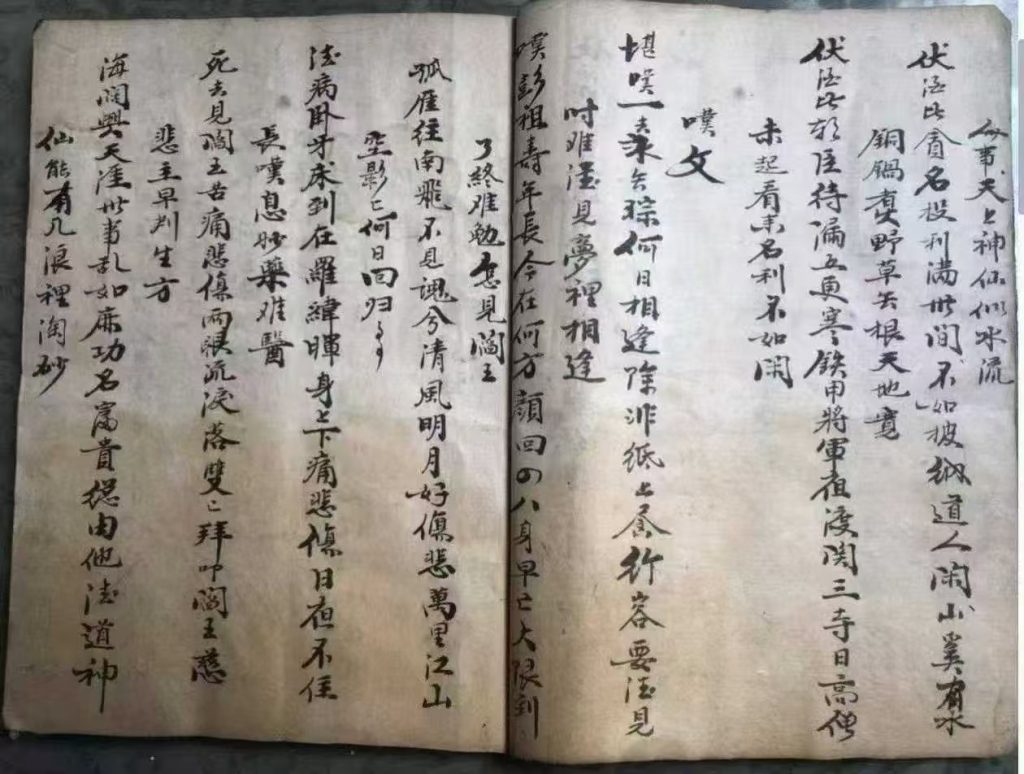 每事天上神仙似水流
伏語比貪名投利滿世間不如披衲道人閑山奚有水
銅鍋煮野草去根天地寬
伏語比朝臣待漏五更寒鉄甲將軍夜渡関三寺日高僧
未起看来名利不如閑
嘆文
堪嘆一去来無踪何日相逢除非紙上畫行容要得見
时难得見夢裡相逢
嘆彭祖壽年長今在何方顔回四八身早亡大限到
了終难勉怎見閻王
孤雁往南飛不見魂兮清風明月好傷悲萬里江山
空影亡何日回归
得病卧牙床到在羅緯暉身上下痛悲傷日夜不住
長嘆息妙藥难醫
死去見閻王苦痛悲傷両眼流淚落雙亡拜叩閻王慈
悲主早判生方
海闊興天涯世事乱如麻功名富貴總由他得道神
仙能有几浪裡淘砂